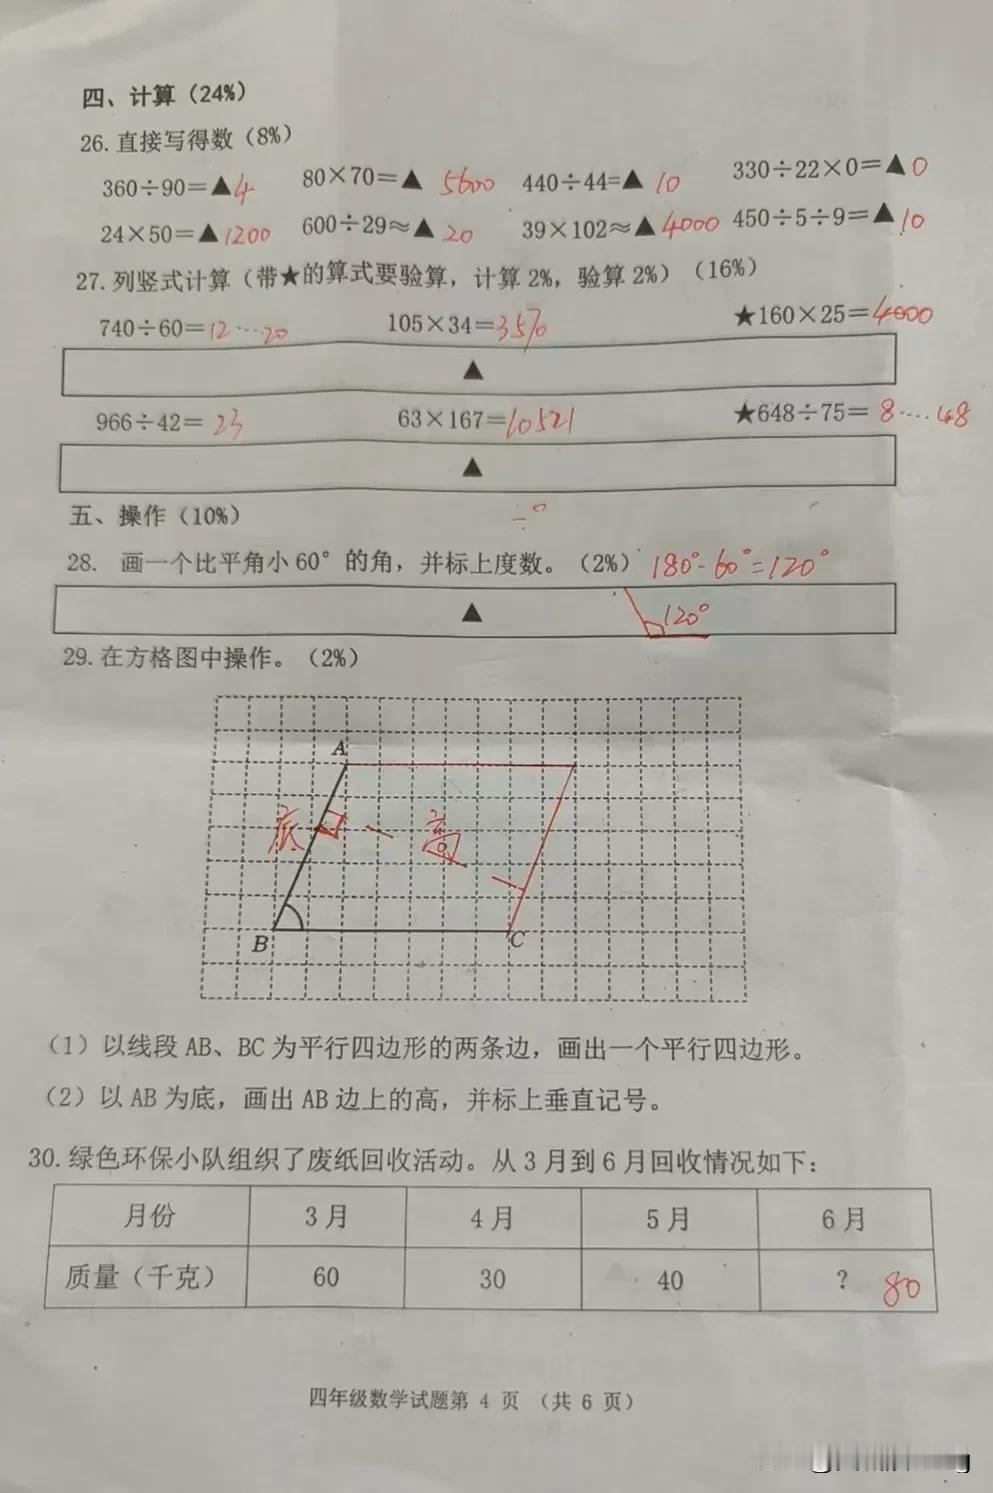 四、计算（24%）
26.直接写得数（8%）
360÷90=▲4 80×70=▲ 5600 440÷44=▲ 10 330÷22×0=▲0
24×50=▲1200 600÷29≈▲ 20 39×102≈▲4000 450÷5÷9=▲10
27.列竖式计算（带★的算式要验算，计算2%，验算2%）（16%）
740÷60=12…20 105×34=3570 ★160×25=4000
▲
966÷42= 23 63×167=10521 ★648÷75= 8……48
▲
五、操作（10%）
÷°
28. 画一个比平角小60°的角，并标上度数。（2%）180°-60°=120°
▲ 120°
29.在方格图中操作。（2%）
A
底 高
B C
（1）以线段AB、BC为平行四边形的两条边，画出一个平行四边形。
（2）以AB为底，画出AB边上的高，并标上垂直记号。
30.绿色环保小队组织了废纸回收活动。从3月到6月回收情况如下：
月份 3月 4月 5月 6月
质量（千克） 60 30 40 ? 80
四年级数学试题第 4 页 （共 6 页）